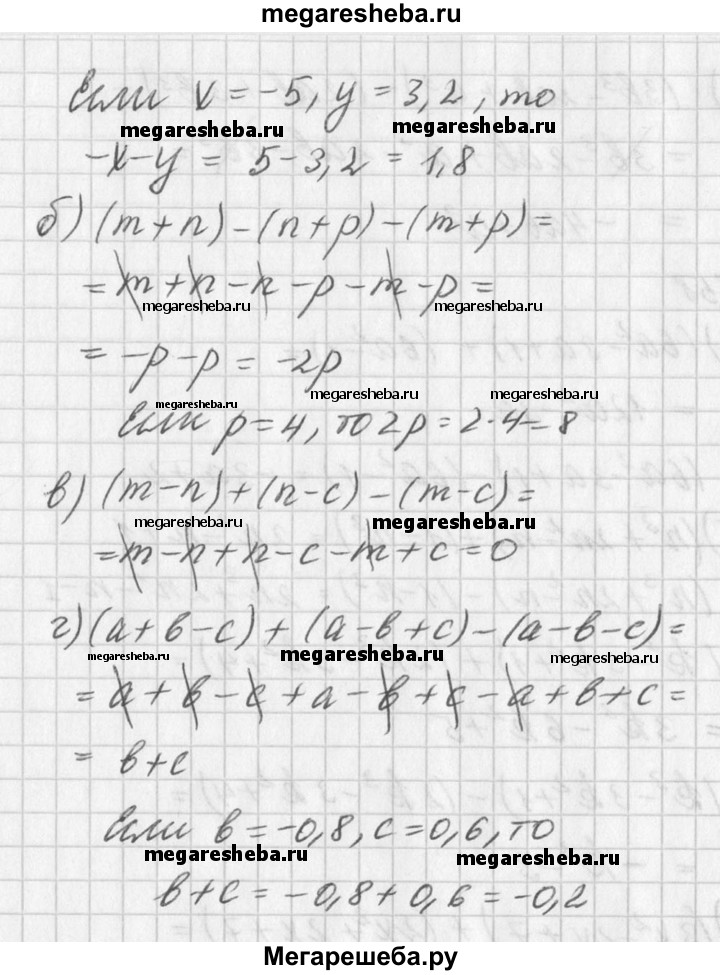 megaresheba.ru
Если x = -5, y = 3,2, то
megaresheba.ru megaresheba.ru
-x-y = 5-3,2 = 1,8
б) (m+n)-(n+p)-(m+p)=
= m+n-n-p-m-p=
megaresheba.ru megaresheba.ru
= -p-p = -2p
megaresheba.ru megaresheba.ru megaresheba.ru
Если p=4, то 2p=2·4=8
в) (m-n)+(n-c)-(m-c)=
megaresheba.ru megaresheba.ru
=m-n+n-c-m+c=0
г)(a+b-c)+(a-b+c)-(a-b-c)=
megaresheba.ru megaresheba.ru megaresheba.ru
=a+b-c+a-b+c-a+b+c=
= b+c
Если b=-0,8, c=0,6, то
megaresheba.ru megaresheba.ru
b+c=-0,8+0,6=-0,2
Мегарешеба.ру